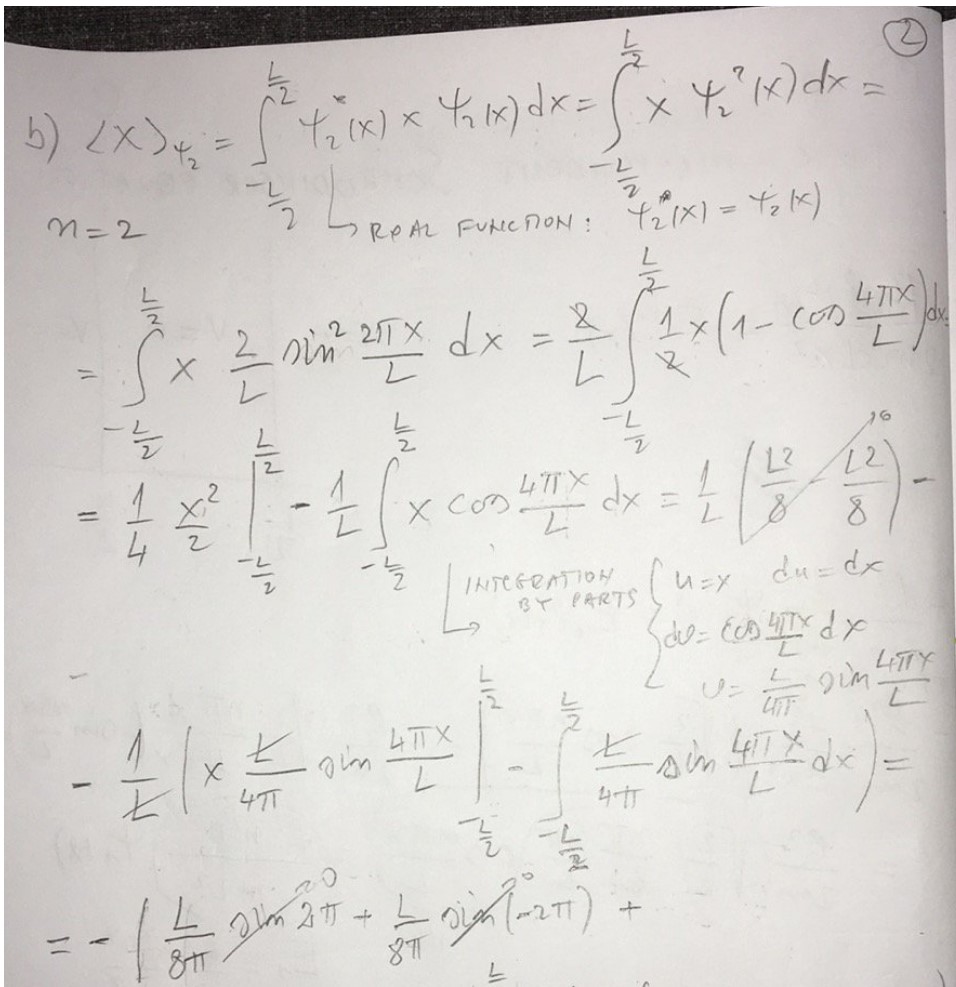 2
b) ⟨x⟩_ψ₂ = ∫_{-L/2}^{L/2} ψ₂*(x) x ψ₂(x) dx = ∫_{-L/2}^{L/2} x ψ₂²(x) dx =
n=2 ↳ REAL FUNCTION: ψ₂*(x) = ψ₂(x)
= ∫_{-L/2}^{L/2} x 2/L sin² 2πx/L dx = 2/L ∫_{-L/2}^{L/2} 1/2 x (1 - cos 4πx/L) dx
= 1/4 x²/2 |_{-L/2}^{L/2} - 1/L ∫_{-L/2}^{L/2} x cos 4πx/L dx = 1/L (L²/8 - L²/8) -
↳ INTEGRATION BY PARTS { u=x du=dx
dv= cos 4πx/L dx
v= L/4π sin 4πx/L
- 1/L ( x L/4π sin 4πx/L |_{-L/2}^{L/2} - ∫_{-L/2}^{L/2} L/4π sin 4πx/L dx ) =
= - ( L/8π sin 2π + L/8π sin(-2π) +